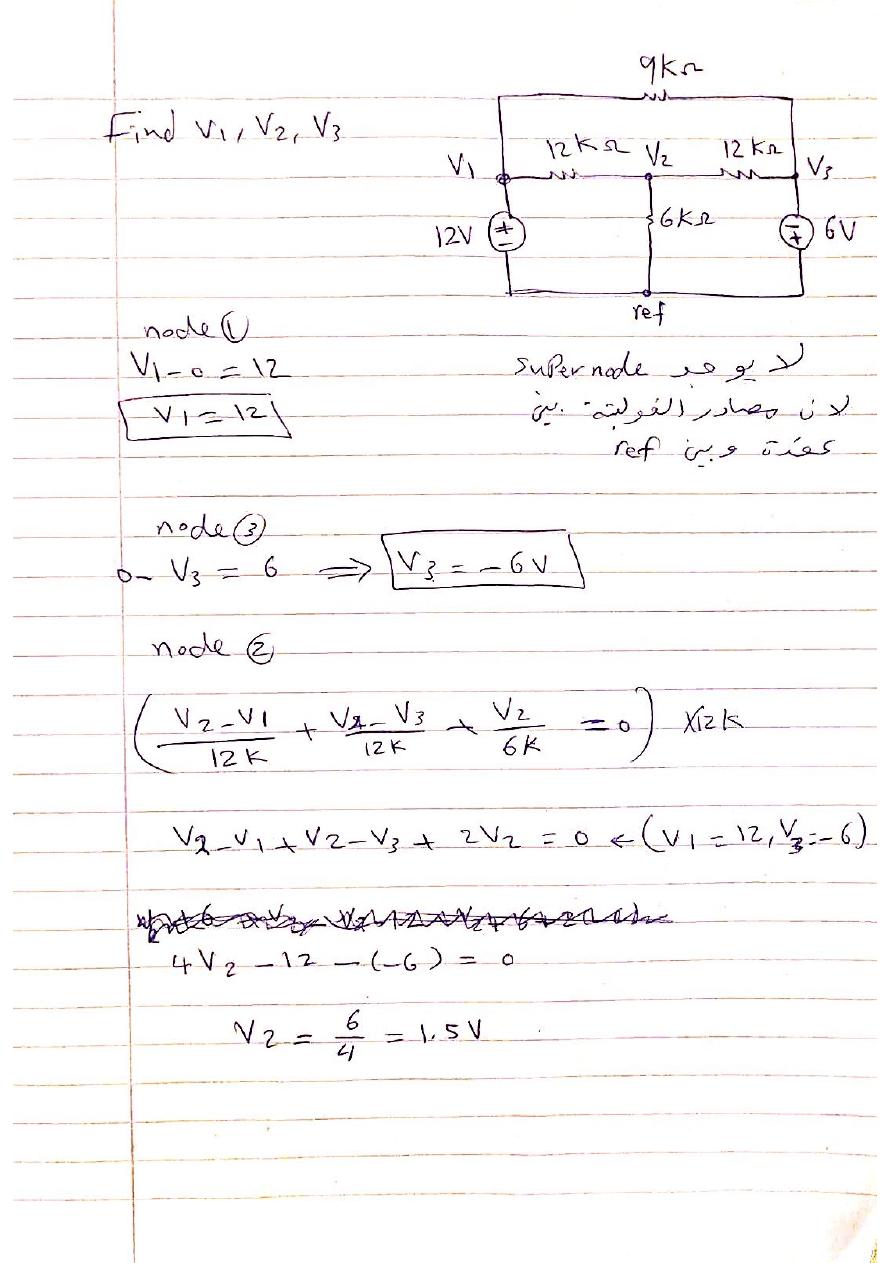 9kΩ
Find V1, V2, V3
12kΩ V2 12kΩ
V1 V3
6kΩ
12V + - - + 6V
ref
node ①
V1-0=12
V1=12
لا يوجد supernode
لان مصادر الفولتية بين
عقدة وبين ref
node ③
0-V3=6 ⇒ V3=-6V
node ②
(V2-V1/12K + V2-V3/12K + V2/6K =0) X12K
V2-V1+V2-V3+2V2=0 ← (V1=12, V3=-6)
4V2-12-(-6)=0
V2=6/4=1.5V